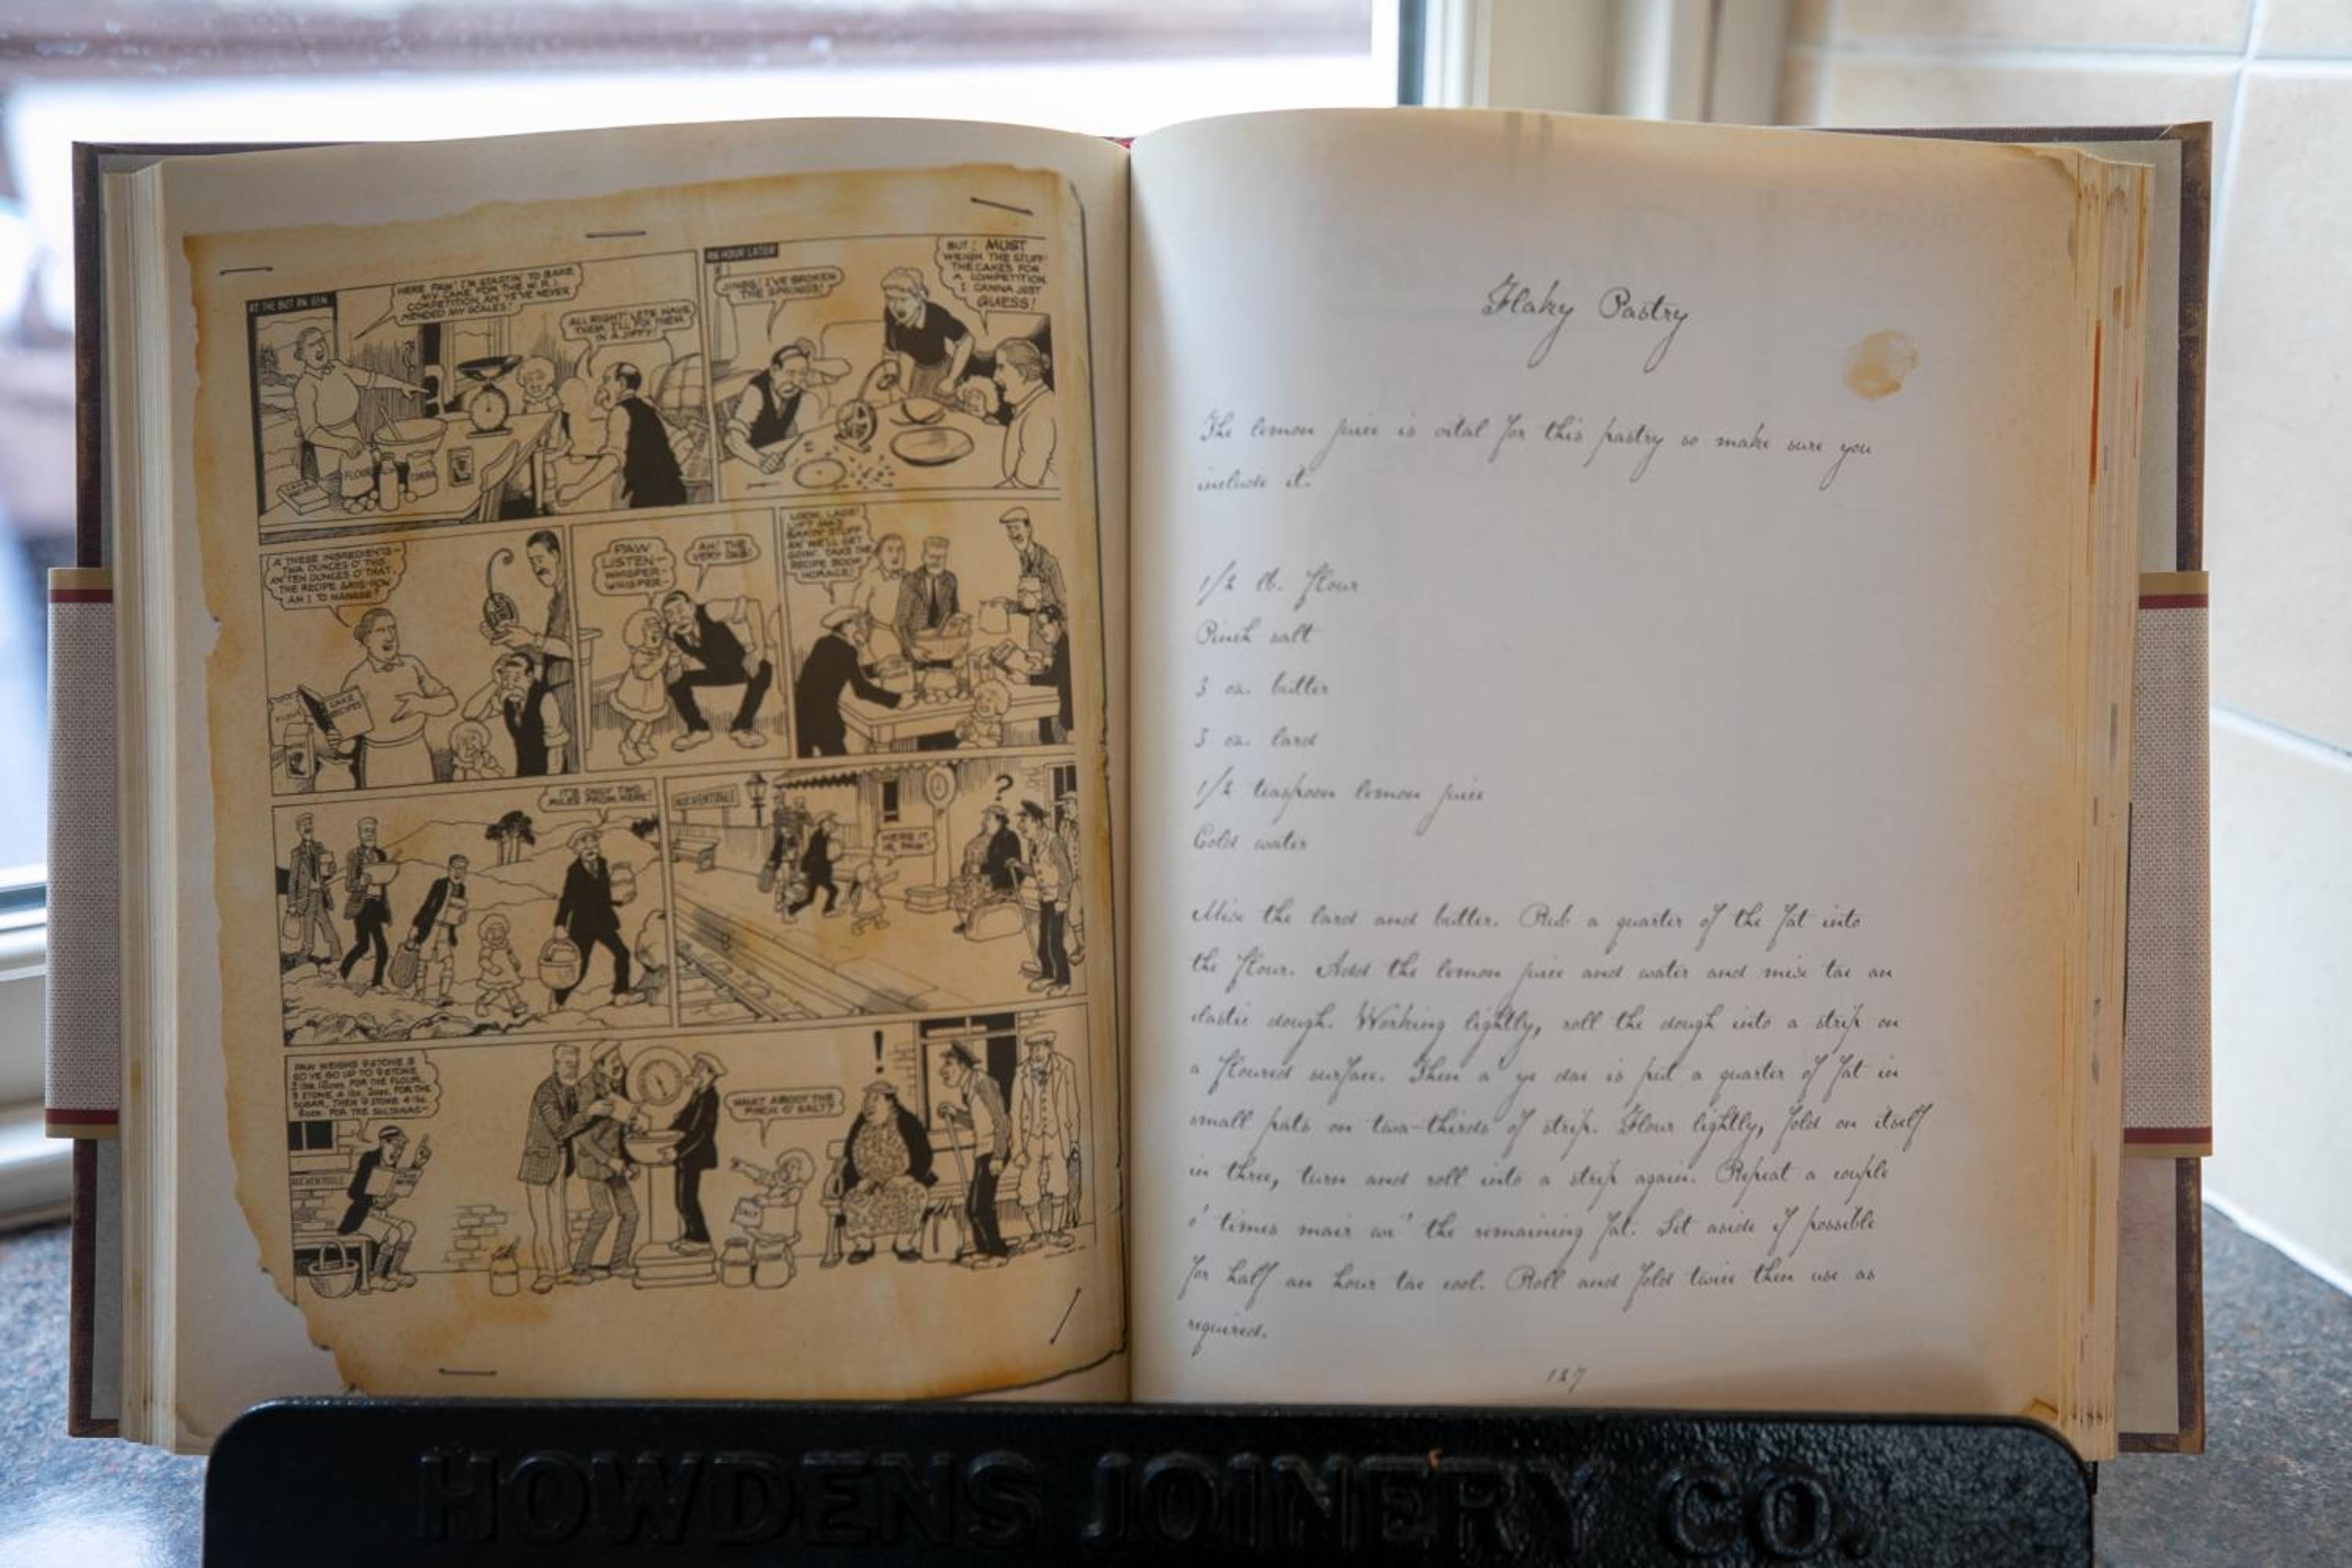 AT THE BUT AN' BEN.
HERE PAW! I'M STARTIN' TO BAKE
MY CAKE FOR THE W.R.I.
COMPETITION, AN' YE'VE NEVER
MENDED MY SCALES!
ALL RIGHT! LET'S HAVE
THEM. I'LL FIX THEM
IN A JIFFY!
FLOUR
AN HOUR LATER
JINGS! I'VE BROKEN
THE SPRINGS!
BUT I MUST
WEIGH THE STUFF!
THE CAKES FOR
A COMPETITION.
I CANNA JIST
GUESS!
A' THESE INGREDIENTS—
TWA OUNCES O' THIS,
AN' TEN OUNCES O' THAT,
THE RECIPE SAYS—HOW
AM I TO MANAGE?
CAKE
RECIPES
PAW
LISTEN—
WHISPER—
WHISPER—
AH! THE
VERY DAB!
LOOK, LADS!
LIFT MA'S
BAKIN' STUFF
AN' WE'LL GET
GOIN'. TAKE THE
RECIPE BOOK
HORACE!
IT'S ONLY TWO
MILES FROM HERE!
AUCHENTOGLE
HERE IT
IS, PAW!
?
PAW WEIGHS 9 STONE 3
SO YE GO UP TO 9 STONE
3 lbs. 12 ozs. FOR THE FLOUR,
9 STONE 4 lbs. 2 ozs. FOR THE
SUGAR, THEN 9 STONE 4 lbs.
8 ozs. FOR THE SULTANAS—
AUCHENTOGLE
WHAT ABOOT THE
PINCH O' SALT?
SALT
!
Flaky Pastry
The lemon juice is vital for this pastry so make sure you
include it.
1/2 lb. flour
Pinch salt
3 oz. butter
3 oz. lard
1/2 teaspoon lemon juice
Cold water
Mix the lard and butter. Rub a quarter of the fat into
the flour. Add the lemon juice and water and mix tae an
elastic dough. Working lightly, roll the dough into a strip on
a floured surface. Then a' ye dae is put a quarter of fat in
small pats on twa-thirds of strip. Flour lightly, fold on itself
in three, turn and roll into a strip again. Repeat a couple
o' times mair an' the remaining fat. Set aside if possible
for half an hour tae cool. Roll and fold twice then use as
required.
127
HOWDENS JOINERY CO.